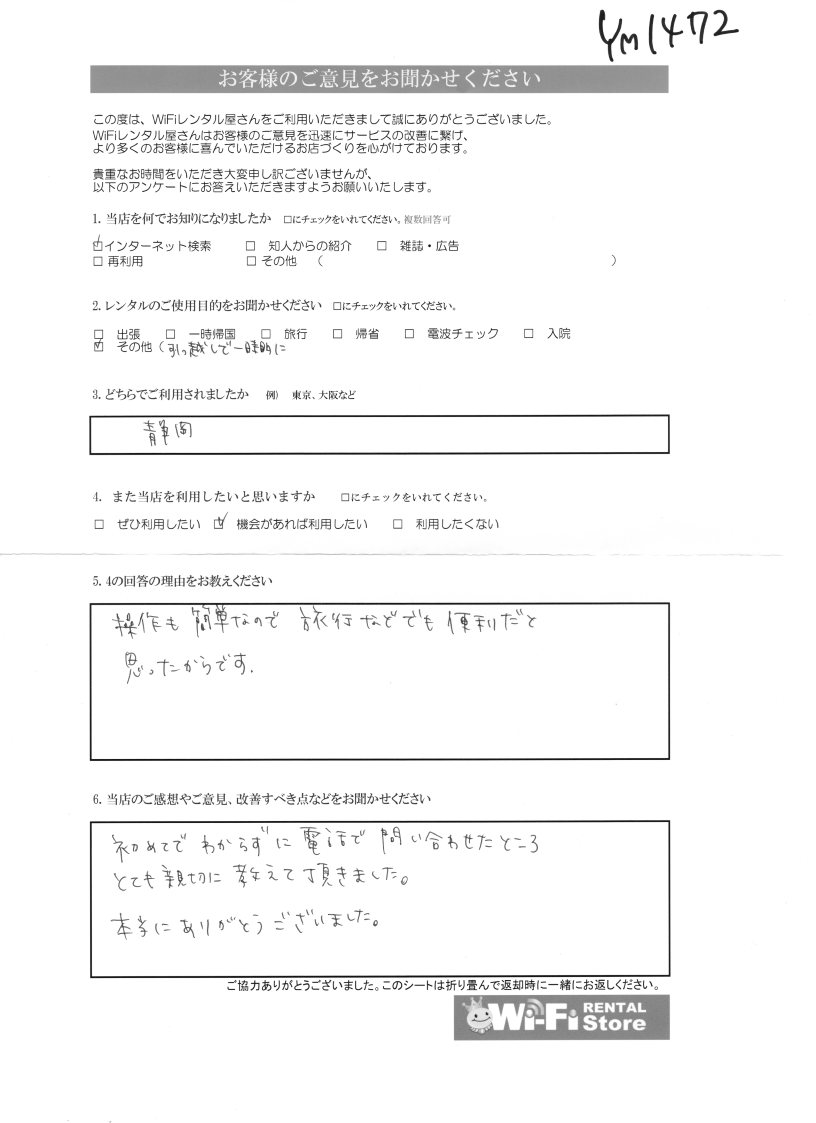 YM1472
お客様のご意見をお聞かせください
この度は、WiFiレンタル屋さんをご利用いただきまして誠にありがとうございました。
WiFiレンタル屋さんはお客様のご意見を迅速にサービスの改善に繋げ、
より多くのお客様に喜んでいただけるお店づくりを心がけております。
貴重なお時間をいただき大変申し訳ございませんが、
以下のアンケートにお答えいただきますようお願いいたします。
1. 当店を何でお知りになりましたか □にチェックをいれてください。複数回答可
☑インターネット検索 □ 知人からの紹介 □ 雑誌・広告
□ 再利用 □ その他 ( )
2. レンタルのご使用目的をお聞かせください □にチェックをいれてください。
□ 出張 □ 一時帰国 □ 旅行 □ 帰省 □ 電波チェック □ 入院
☑ その他 (引っ越しで一時的に
3. どちらでご利用されましたか 例) 東京、大阪など
静岡
4. また当店を利用したいと思いますか □にチェックをいれてください。
□ ぜひ利用したい ☑ 機会があれば利用したい □ 利用したくない
5. 4の回答の理由をお教えください
操作も簡単なので旅行などでも便利だと
思ったからです.
6. 当店のご感想やご意見、改善すべき点などをお聞かせください
初めてでわからずに電話で問い合わせたところ
とても親切に教えて頂きました。
本当にありがとうございました。
ご協力ありがとうございました。このシートは折り畳んで返却時に一緒にお返しください。
Wi-Fi RENTAL Store